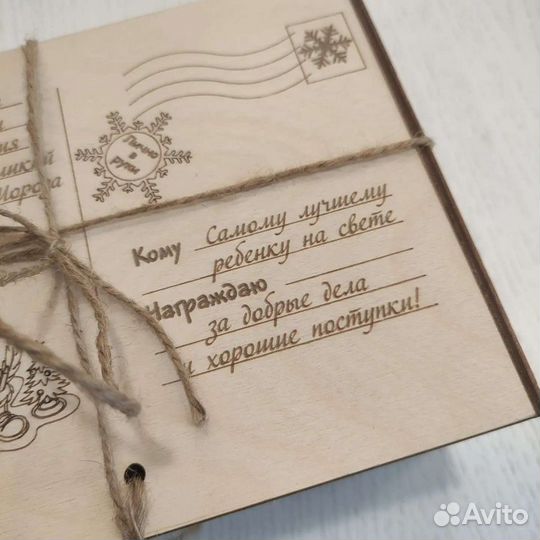 Мороза
Лично
в
руки
Кому Самому лучшему
ребенку на свете
Награждаю
за добрые дела
и хорошие поступки!
Avito